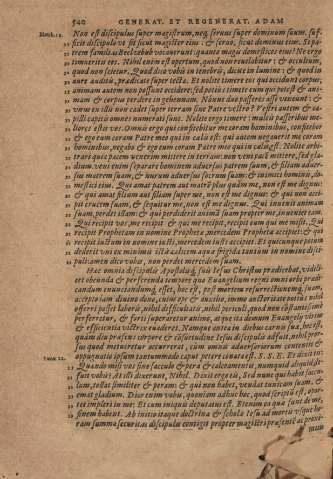 540 GENERAT. ET REGENERAT. ADAM
Matth. 12. Non est discipulus super magistrum, neq; seruus super dominum suum, suf-
ficit discipulo vt sit sicut magister eius: & seruo, sicut dominus eius. Si pa-
trem familias Beelzebub vocauerunt: quanto magis domesticos eius? Ne ergo
timueritis eos. Nihil enim est opertum, quod non reuelabitur: & occultum,
quod non scietur. Quod dico vobis in tenebris, dicite in lumine: & quod in
aure auditis, praedicate super tecta. Et nolite timere eos qui occidunt corpus;
animam autem non possunt occidere: sed potius timete eum qui potest & ani-
mam & corpus perdere in gehennam. Nonne duo passeres asse veneunt: &
vnus ex illis non cadet super terram sine Patre vestro? Vestri autem & ca-
pilli capitis omnes numerati sunt. Nolite ergo timere: multis passeribus me-
liores estis vos. Omnis ergo qui confitebitur me coram hominibus, confitebor
& ego eum coram Patre meo qui in caelis est: qui autem negauerit me coram
hominibus, negabo & ego eum coram Patre meo qui in caelis est. Nolite arbi-
trari quia pacem venerim mittere in terram: non veni pacem mittere, sed gla-
dium. veni enim separare hominem aduersus patrem suum, & filiam aduer-
sus matrem suam, & nurum aduersus socrum suam: & inimici hominis, do-
mestici eius. Qui amat patrem aut matrem plus quam me, non est me dignus:
& qui amat filium aut filiam super me, non est me dignus: & qui non acci-
pit crucem suam, & sequitur me, non est me dignus. Qui inuenit animam
suam, perdet illam: & qui perdiderit animam suam propter me, inueniet eam.
Qui recipit vos, me recipit: & qui me recipit, recipit eum qui me misit. Qui
recipit Prophetam in nomine Prophetae, mercedem Prophetae accipiet: & qui
recipit iustum in nomine iusti, mercedem iusti accipiet. Et quicunque potum
dederit vni ex minimis istis calicem aquae frigidae tantum in nomine disci-
puli: amen dico vobis, non perdet mercedem suam.
Haec omnia discipulis Apostolisq; suis Iesus Christus praedicebat, videli-
cet obeunda & perferenda tempore quo Euangelium regni omni orbi praedi-
candum enunciandumq; esset, hoc est, post mortem resurrectionemq; suam,
offerri posset laboris, nihil difficultatis, nihil periculi, quod non constantissime
perferretur, & forti superaretur animo, atque ita demum Euangelij virtus
& efficientia victrix euaderet. Namque antea in diebus carnis suae, hoc est,
quamdiu praesens corpore & consuetudine Iesus discipulis adfuit, nihil pror-
sus quod metueretur
oppugnatio ipsum tantummodo caput petere cinata est. S. S. E. Et dixit eis:
Lucae 22. Quando misi vos sine sacculo & pera & calceamentis, nunquid aliquid de-
fuit vobis? At illi dixerunt, Nihil. Dixit ergo eis, Sed nunc qui habet saccu-
lum, tollat similiter & peram: & qui non habet, vendat tunicam suam, &
emat gladium. Dico enim vobis, quoniam adhuc hoc, quod scriptum est, opor-
tet impleri in me: Et cum iniquis deputatus est. Etenim ea quae sunt de me,
finem habent. Ab initio itaque doctrinae & scholae Iesu ad mortis vsque ho-
ram summa securitas discipulis contigit propter magistri praesentis ac proxi-
mum